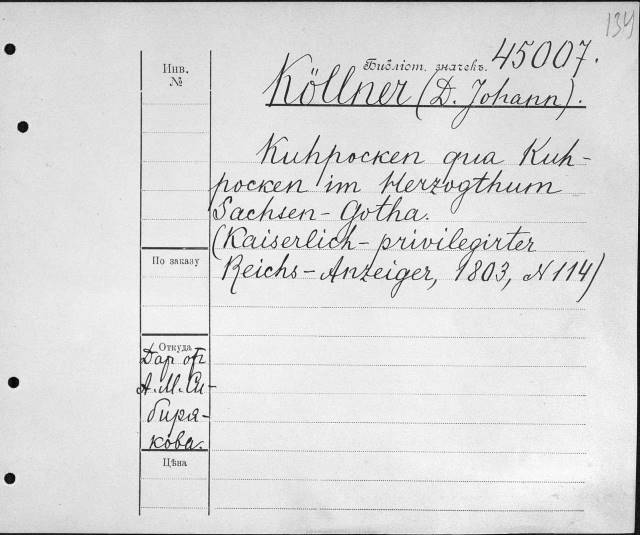 134
Инв.
№
Библіот. значекъ. 45007.
Köllner (D. Johann).
Kuhpocken qua Kuh-
pocken im Herzogthum
Sachsen-Gotha.
(Kaiserlich-privilegirter
Reichs-Anzeiger, 1803, N 114)
По заказу
Откуда
Дар от
А. М. Си-
биря-
кова.
Цѣна